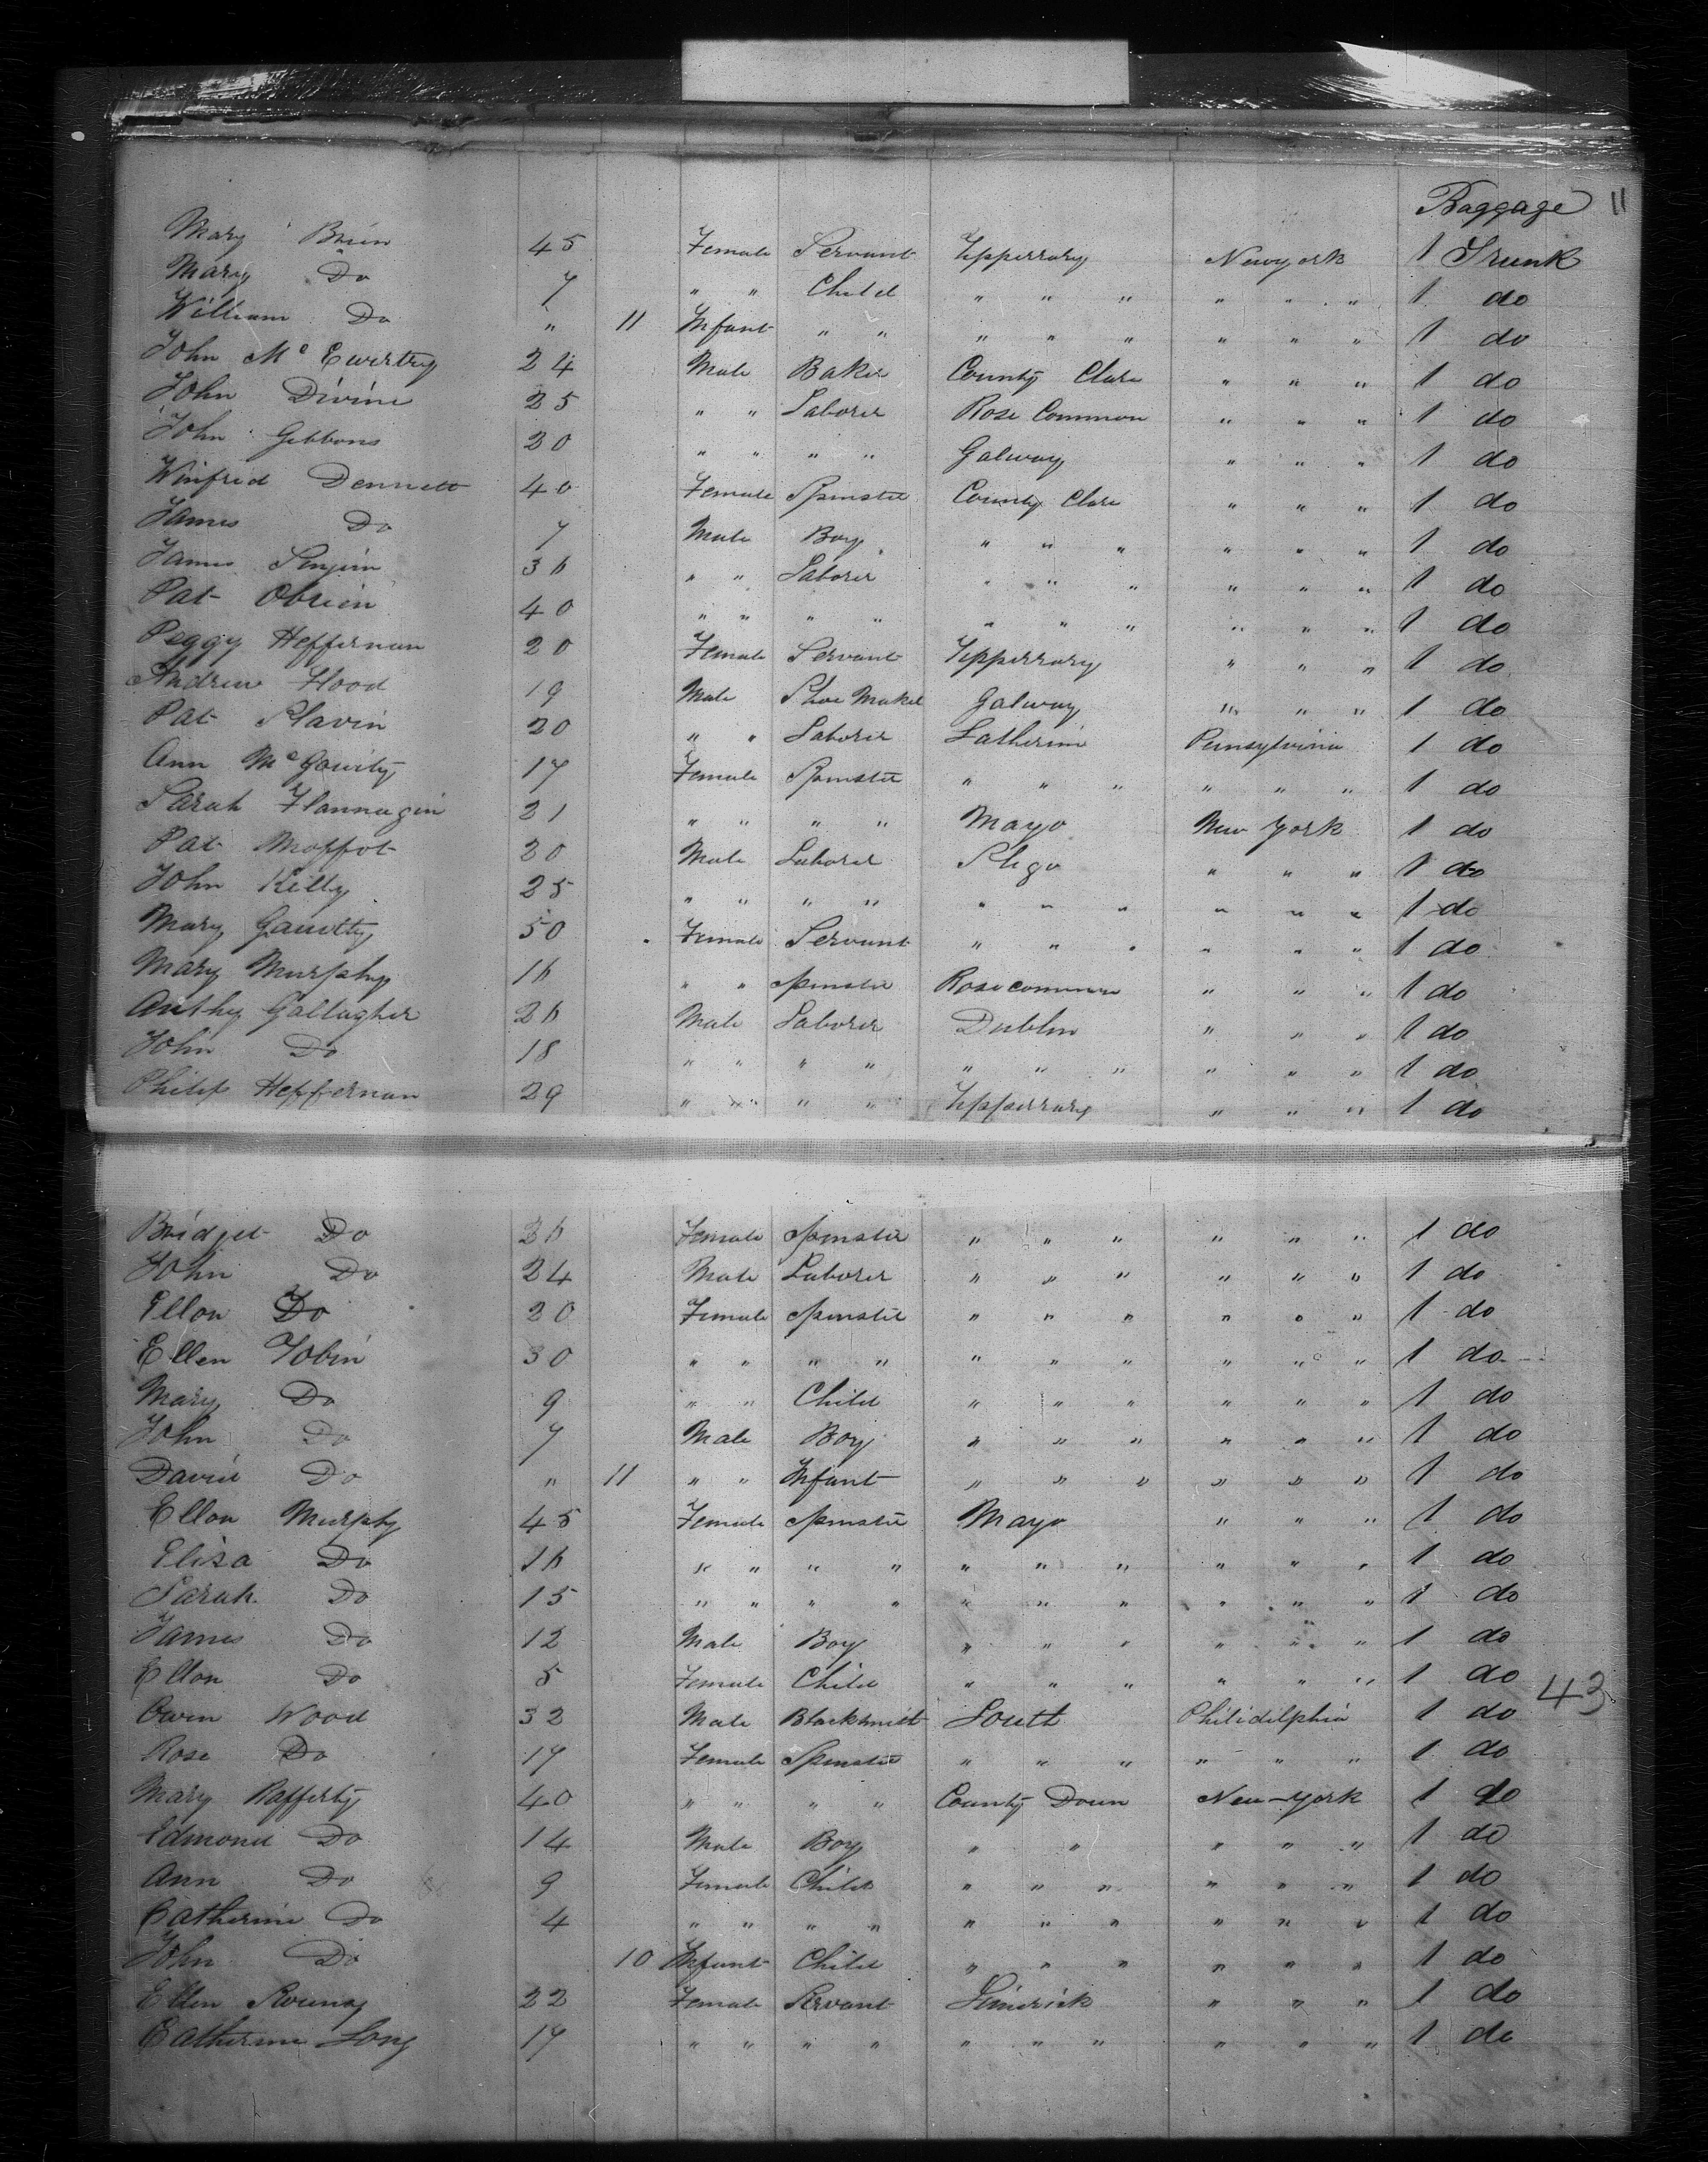 Baggage 11
Mary Brien 45 Female Servant Tipperrary Newyork 1 Trunk
Mary Do 7 " " Child " " " " " " 1 do
William Do " 11 Infant " " " " " " " " 1 do
John Mc 24 Male Baker County Clare " " " 1 do
John Divine 25 " " Laborer Rose Common " " " 1 do
John Gibbons 20 " " " " Galway " " " 1 do
Winfred Dennett 40 Female Spinster County Clare " " " 1 do
James Do 7 Male Boy " " " " " " 1 do
James 36 " " Laborer " " " " " " 1 do
Pat Obrien 40 " " " " " " " " " " 1 do
Peggy Heffernan 20 Female Servant Tipperrary " " " 1 do
Andrew Hood 19 Male Shoe Maker Galway " " " 1 do
Pat Slavin 20 " " Laborer Pensylvinia 1 do
Ann 17 Female Spinster " " " " " " 1 do
Sarah Flannagin 21 " " " " Mayo New York 1 do
Pat Moffot 20 Male Laborer Sligo " " " 1 do
John Kelly 25 " " " " " " " " " " 1 do
Mary 50 Female Servant " " " " " " 1 do
Mary Murphy 16 " " spinster Rosecommon " " " 1 do
Anthy Gallagher 26 Male Laborer Dublin " " " 1 do
John Do 18 " " " " " " " " " " 1 do
Philip Heffernan 29 " " " " Tipperrary " " " 1 do
Bridget Do 26 Female spinster " " " " " " 1 do
John Do 24 Male Laborer " " " " " " 1 do
Ellon Do 20 Female spinster " " " " " " 1 do
Ellen Tobin 30 " " " " " " " " " " 1 do
Mary Do 9 " " Child " " " " " " 1 do
John Do 7 Male Boy " " " " " " 1 do
David Do " 11 " " Infant " " " " " " 1 do
Ellon Murphy 45 Female spinster Mayo " " " 1 do
Eliza Do 16 " " " " " " " " " " 1 do
Sarah Do 15 " " " " " " " " " " 1 do
James Do 12 Male Boy " " " " " " 1 do
Ellon Do 5 Female Child " " " " " " 1 do 43
Owen Wood 32 Male Blacksmith Louth Philidelphia 1 do
Rose Do 17 Female Spinster " " " " " " 1 do
Mary Rafferty 40 " " " " County Down New-York 1 do
Edmond Do 14 Male Boy " " " " " 1 do
Ann Do 9 Female Child " " " " " " 1 do
Catherine Do 4 " " " " " " " " " " 1 do
John Do 10 Infant Child " " " " " " 1 do
Ellen 22 Female Servant Limerick " " " 1 do
Catherine Long 17 " " " " " " " " " " 1 do